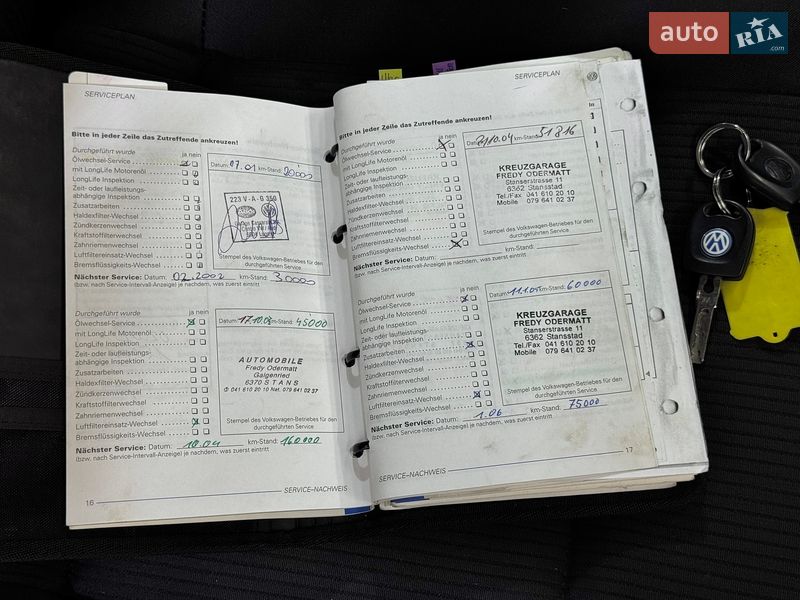 auto RIA .com
SERVICEPLAN
Bitte in jeder Zeile das Zutreffende ankreuzen!
Durchgeführt wurde ja nein
Ölwechsel-Service
mit LongLife Motorenöl
LongLife Inspektion
Zeit- oder laufleistungs-
abhängige Inspektion
Zusatzarbeiten
Haldexfilter-Wechsel
Zündkerzenwechsel
Kraftstofffilterwechsel
Zahnriemenwechsel
Luftfiltereinsatz-Wechsel
Bremsflüssigkeits-Wechsel
Datum: 07.01 km-Stand: 20000
223 V-A-G 350
Stempel des Volkswagen-Betriebes für den
durchgeführten Service
Nächster Service: Datum: 02.2002 km-Stand: 30000
(bzw. nach Service-Intervall-Anzeige) je nachdem, was zuerst eintritt
Durchgeführt wurde ja nein
Ölwechsel-Service
mit LongLife Motorenöl
LongLife Inspektion
Zeit- oder laufleistungs-
abhängige Inspektion
Zusatzarbeiten
Haldexfilter-Wechsel
Zündkerzenwechsel
Kraftstofffilterwechsel
Zahnriemenwechsel
Luftfiltereinsatz-Wechsel
Bremsflüssigkeits-Wechsel
Datum: km-Stand: 45000
AUTOMOBILE
Fredy Odermatt
Galgenried
6370 STANS
041 610 20 10 Nat. 079 641 02 37
Stempel des Volkswagen-Betriebes für den
durchgeführten Service
Nächster Service: Datum: 10.04 km-Stand: 160000
(bzw. nach Service-Intervall-Anzeige) je nachdem, was zuerst eintritt
16
SERVICE–NACHWEIS
SERVICEPLAN
Bitte in jeder Zeile das Zutreffende ankreuzen!
Durchgeführt wurde ja nein
Ölwechsel-Service
mit LongLife Motorenöl
LongLife Inspektion
Zeit- oder laufleistungs-
abhängige Inspektion
Zusatzarbeiten
Haldexfilter-Wechsel
Zündkerzenwechsel
Kraftstofffilterwechsel
Zahnriemenwechsel
Luftfiltereinsatz-Wechsel
Bremsflüssigkeits-Wechsel
km-Stand: 51816
KREUZGARAGE
FREDY ODERMATT
Stanserstrasse 11
6362 Stansstad
Tel./Fax 041 610 20 10
Mobile 079 641 02 37
Stempel des Volkswagen-Betriebes für den
durchgeführten Service
Nächster Service: Datum: km-Stand:
(bzw. nach Service-Intervall-Anzeige) je nachdem, was zuerst eintritt
Durchgeführt wurde ja nein
Ölwechsel-Service
mit LongLife Motorenöl
LongLife Inspektion
Zeit- oder laufleistungs-
abhängige Inspektion
Zusatzarbeiten
Haldexfilter-Wechsel
Zündkerzenwechsel
Kraftstofffilterwechsel
Zahnriemenwechsel
Luftfiltereinsatz-Wechsel
Bremsflüssigkeits-Wechsel
Datum: km-Stand: 60000
KREUZGARAGE
FREDY ODERMATT
Stanserstrasse 11
6362 Stansstad
Tel./Fax 041 610 20 10
Mobile 079 641 02 37
Stempel des Volkswagen-Betriebes für den
durchgeführten Service
Nächster Service: Datum: 1.06 km-Stand: 75000
(bzw. nach Service-Intervall-Anzeige) je nachdem, was zuerst eintritt
17
SERVICE–NACHWEIS